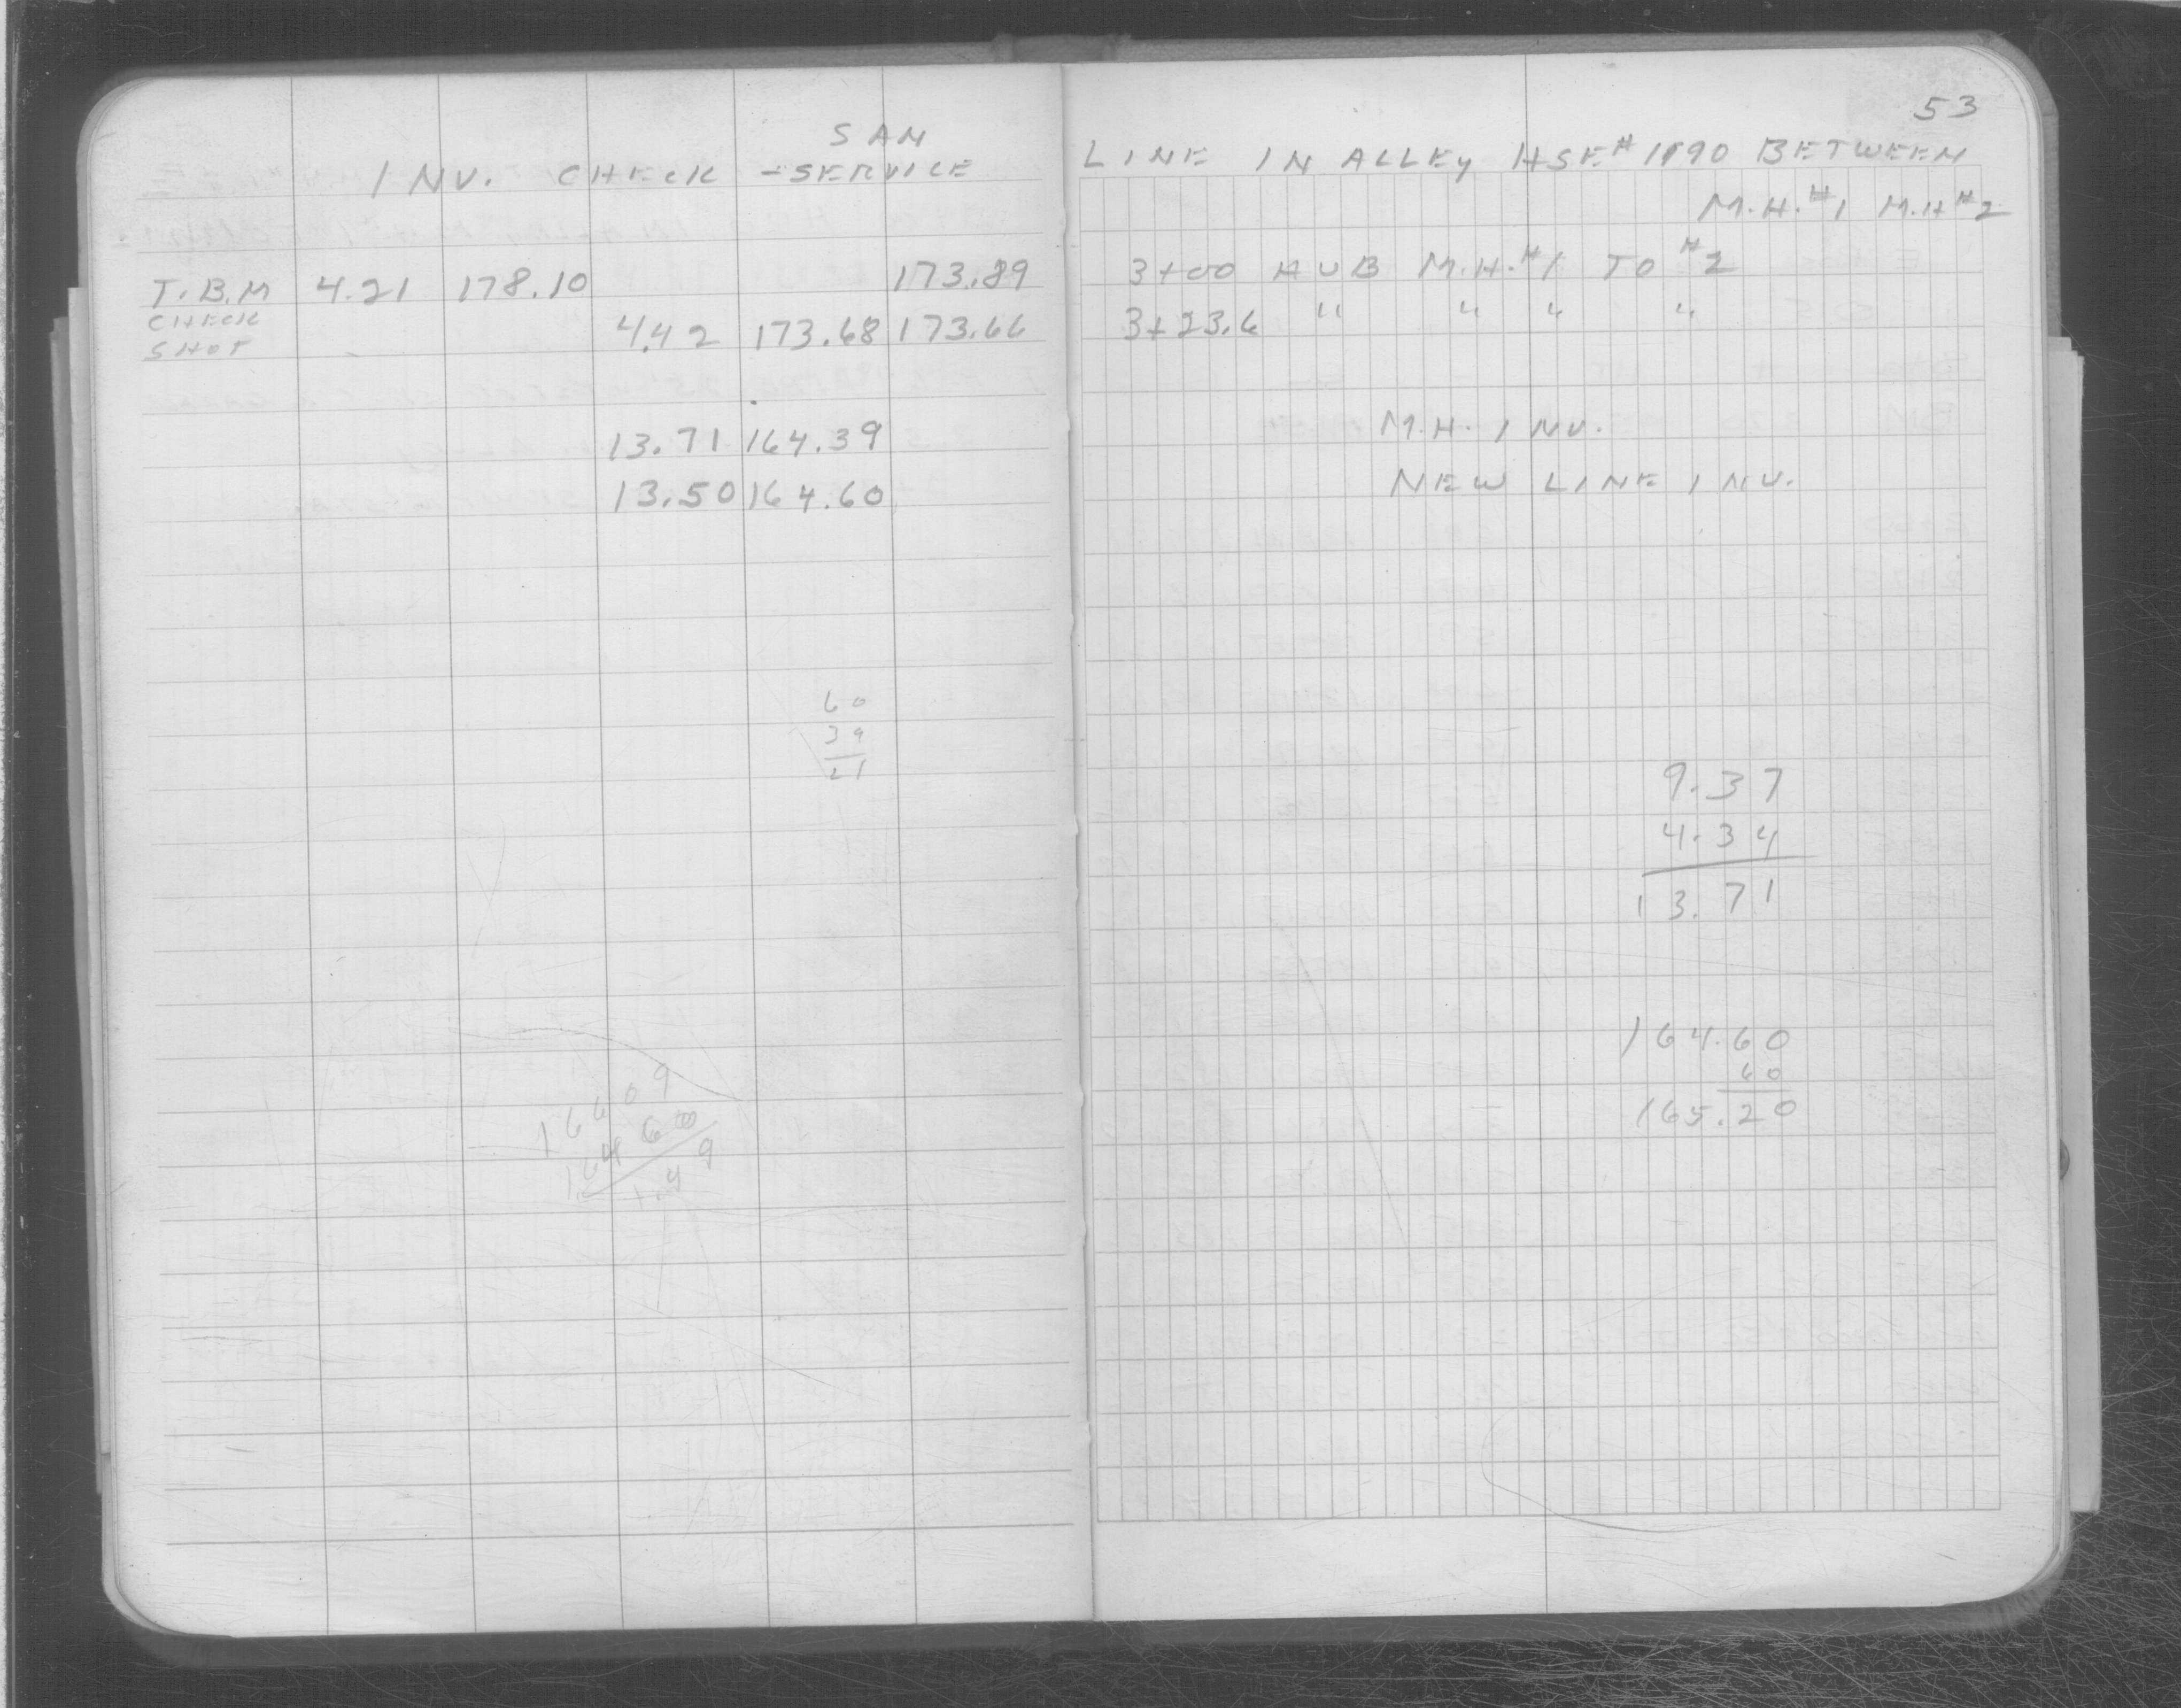 53
SAN
INV. CHECK - SERVICE LINE IN ALLEY HSE# 1190 BETWEEN
M.H.#1 M.H#2
T.B.M 4.21 178.10 173.89 3+00 HUB M.H.#1 TO #2
CHECK SHOT 4.42 173.68 173.66 3+23.6 " " " "
13.71 164.39 M.H. INV.
13.50 164.60 NEW LINE INV.
60
39
21
9.37
4.34
13.71
164.60
60
165.20
166 09
164 60
1.49